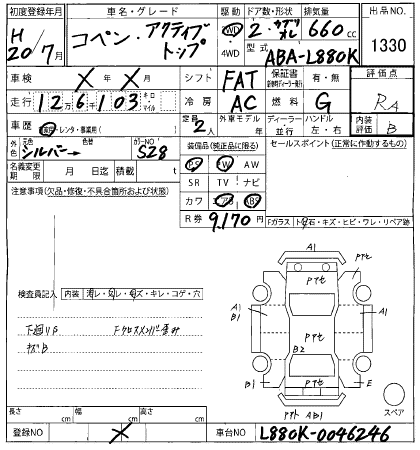 初度登録年月 車名・グレード 駆動 ドア数・形状 排気量 出品NO.
H 20/7月 コペン・アクティブトップ 2WD・4WD 2・カブリオレ 660cc 1330
型式 ABA-L880K
車検 X年X月 シフト FAT 保証書 有・無 評価点
走行 126103 キロ・マイル 冷房 AC 燃料 G RA
車歴 自家用・レンタ・事業用( ) 定員 2人 外車モデル 年 ディーラー・並行 ハンドル 左・右 内装評価 B
外色 元色 シルバー→ 色替 カラーNO S28 装備品(純正品に限る) セールスポイント(正常に作動するもの)
名義変更期限 月 日迄 積載 t PS PW AW
注意事項(欠品・修復・不具合箇所および状態) SR TV ナビ
カワ エアB ABS
R券 9,170円 Fガラス トビ石・キズ・ヒビ・ワレ・リペア跡
A1
Pアセ
Pアセ
検査員記入 内装 汚レ・スレ・キズ・キレ・コゲ・穴
A1 B1 Pアセ A1
下廻りS Fクロスメンバー歪み
B2
キズB
B1 Pアセ E
A1 B1
スペア
長さ cm 幅 cm 高さ cm
登録NO X 車台NO L880K-0046246